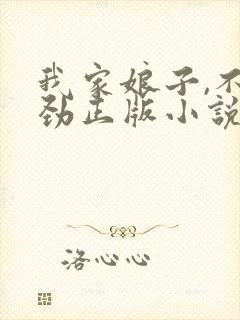 我家娘子,不
劲正版小説
洛心心